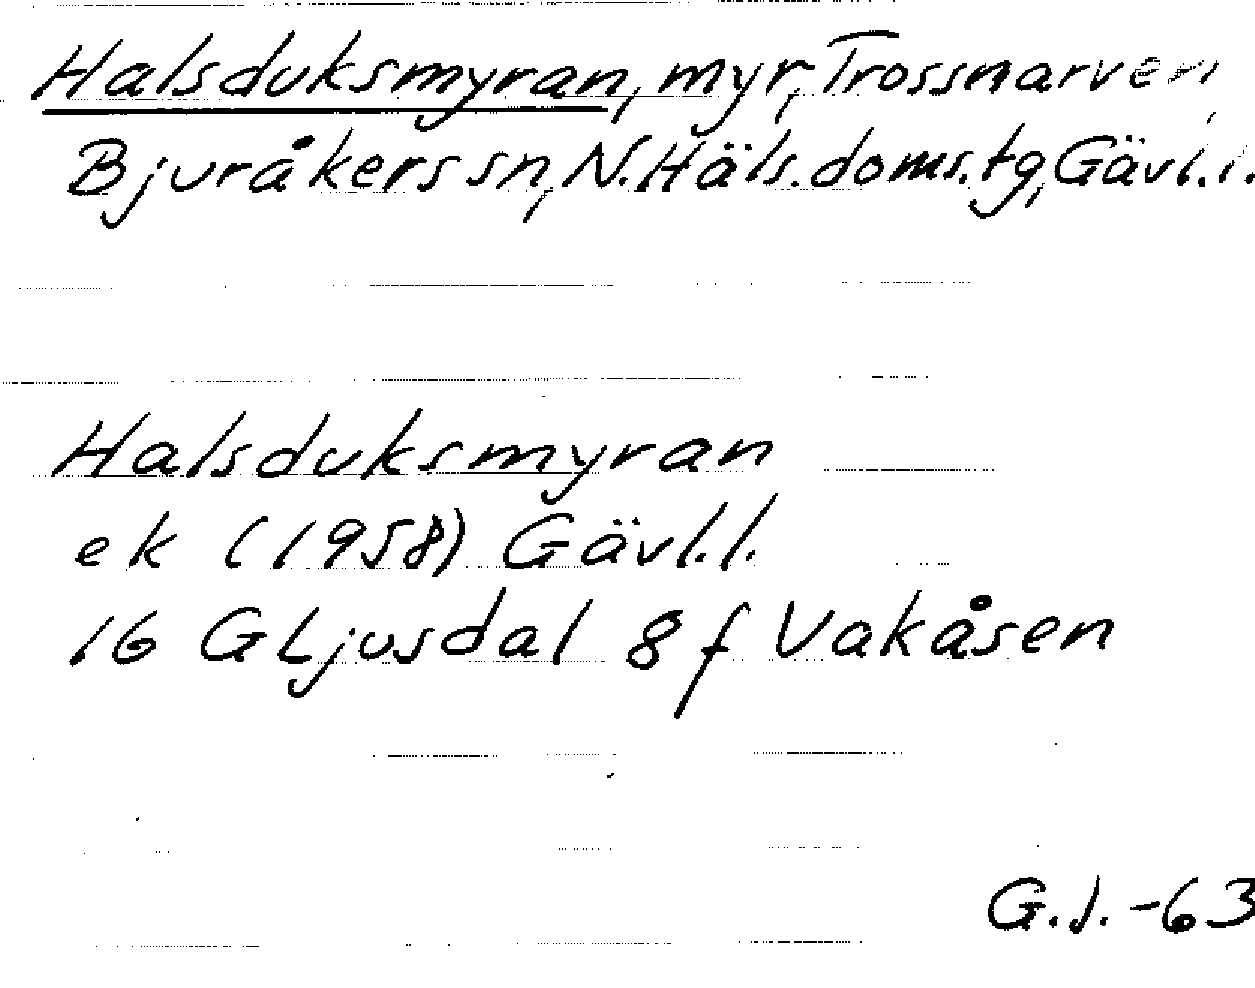 Halsduksmyran, myr, Trossnarven,
Bjuråkers sn, N. Häls. doms. tg, Gävl. l.
Halsduksmyran
ek (1958) Gävl. l.
16 G Ljusdal 8 f Vakåsen
G. J. -63